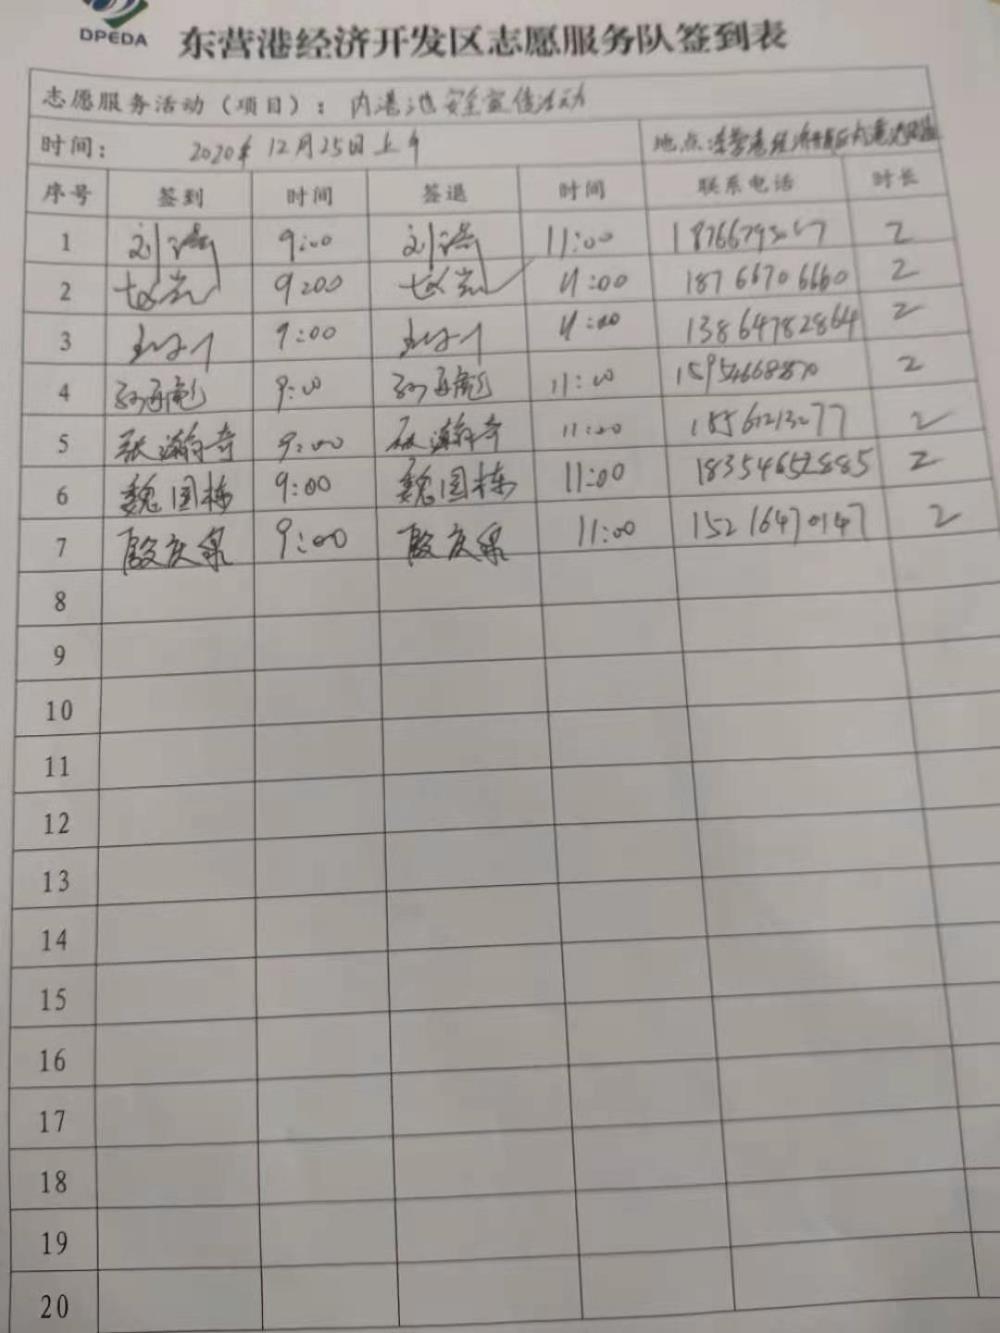 DPEDA
东营港经济开发区志愿服务队签到表
志愿服务活动（项目）：内港池安全宣传活动
时间： 2020年12月25日上午 地点：东营港经济开发区内港池
序号 签到 时间 签退 时间 联系电话 时长
1 刘 9:00 刘 11:00 2
2 9:00 11:00 18766706660 2
3 9:00 11:00 13864782864 2
4 9:00 11:00 15954668870 2
5 张瀚奇 9:00 张瀚奇 11:00 18561213277 2
6 魏国栋 9:00 魏国栋 11:00 18354652885 2
7 殷庆泉 9:00 殷庆泉 11:00 15216470147 2
8
9
10
11
12
13
14
15
16
17
18
19
20